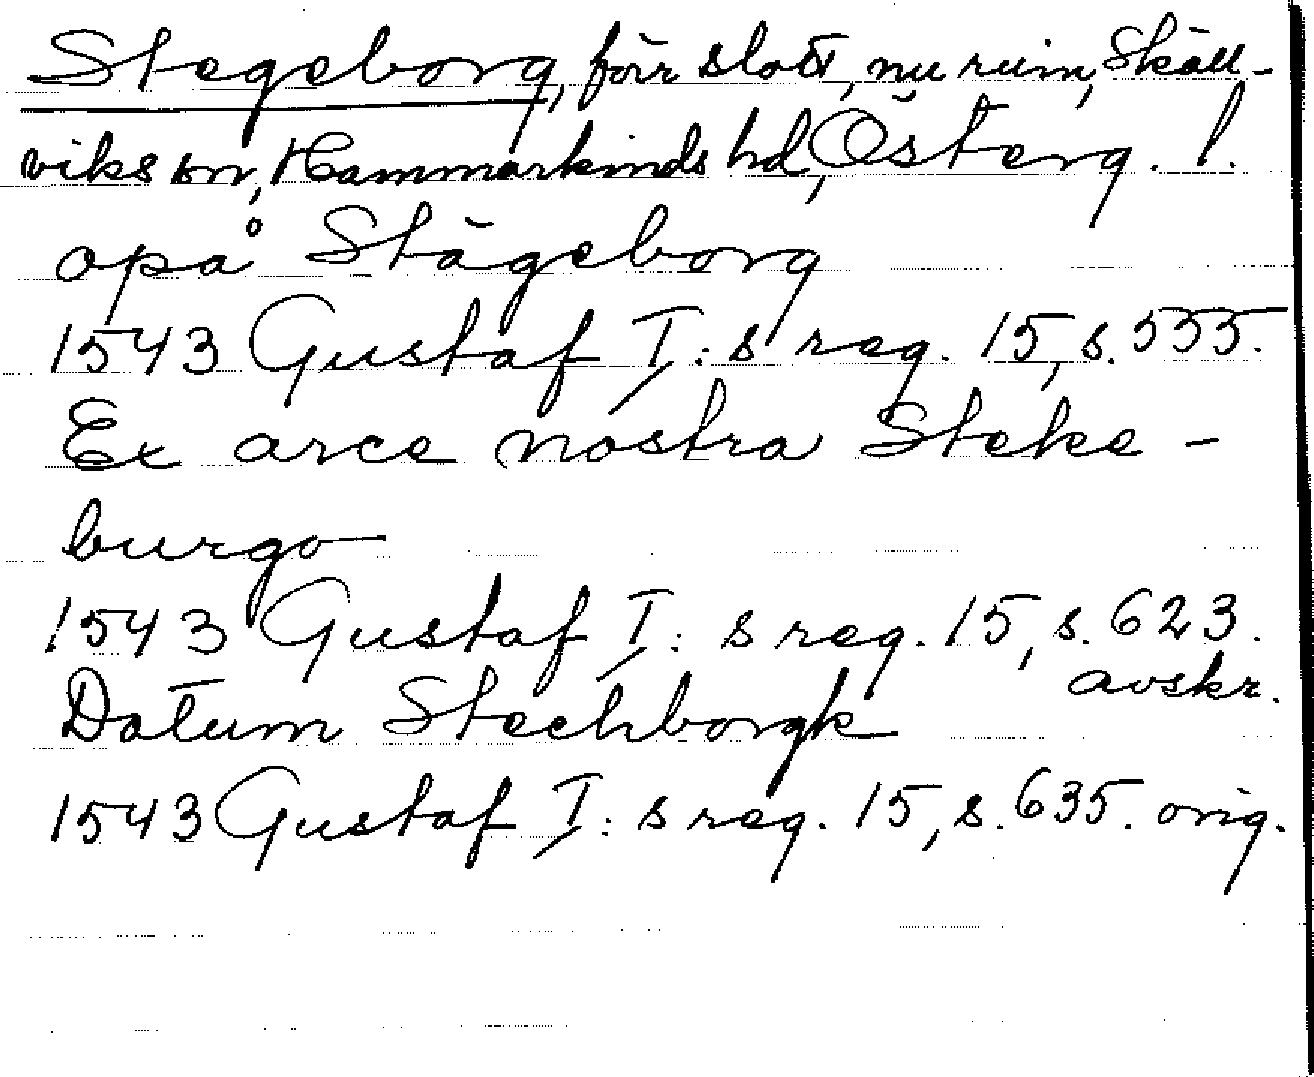 Stegeborg, förr slott, nu ruin, Skäll-
viks sn, Hammarkinds hd, Österg. l.
opå Stägeborg
1543 Gustaf I:s reg. 15, s. 555.
Ex arce nostra Steke-
burgo
1543 Gustaf I:s reg. 15, s. 623.
avskr.
Datum Stechborgk
1543 Gustaf I:s reg. 15, s. 635. orig.